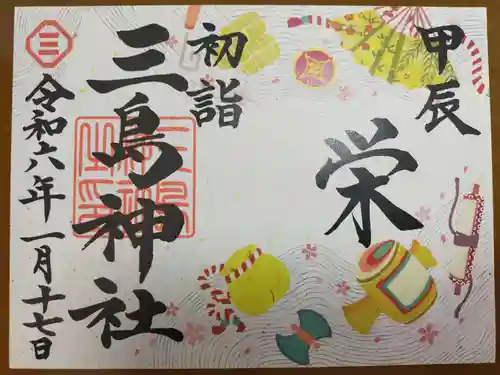 甲辰
栄
初詣
三島神社
令和六年一月十七日
三